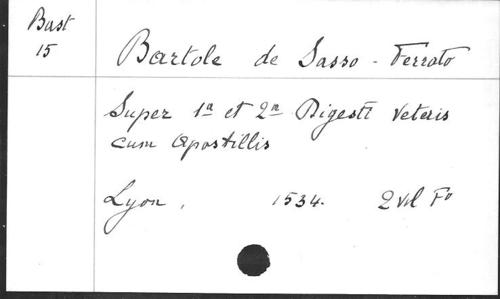 Bast
15
Bartole de Sasso - Ferrato
Super 1a et 2a Digesti Veteris
cum Apostillis
Lyon, 1534. 2 vol Fo